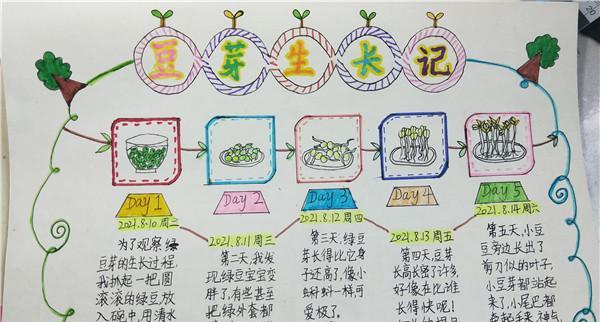 豆芽生长记
Day 1
Day 2
Day 3
Day 4
Day 5
2021.8.10 周二
2021.8.11 周三
2021.8.12 周四
2021.8.13 周五
2021.8.14 周六
为了观察绿
豆芽的生长过程,
我抓起一把圆
滚滚的绿豆,放
入碗中,用清水
第二天,我发
现绿豆宝宝变
胖了,有些甚至
把绿外套都
第三天,绿豆
芽长得比它身
子还高了,像小
蝌蚪一样可
爱极了。
第四天,豆芽
长高长密了许多,
好像在比谁
长得快呢!
第五天,小豆
豆旁边长出了
剪刀似的叶子,
小豆芽都站起
来了,小尾巴都